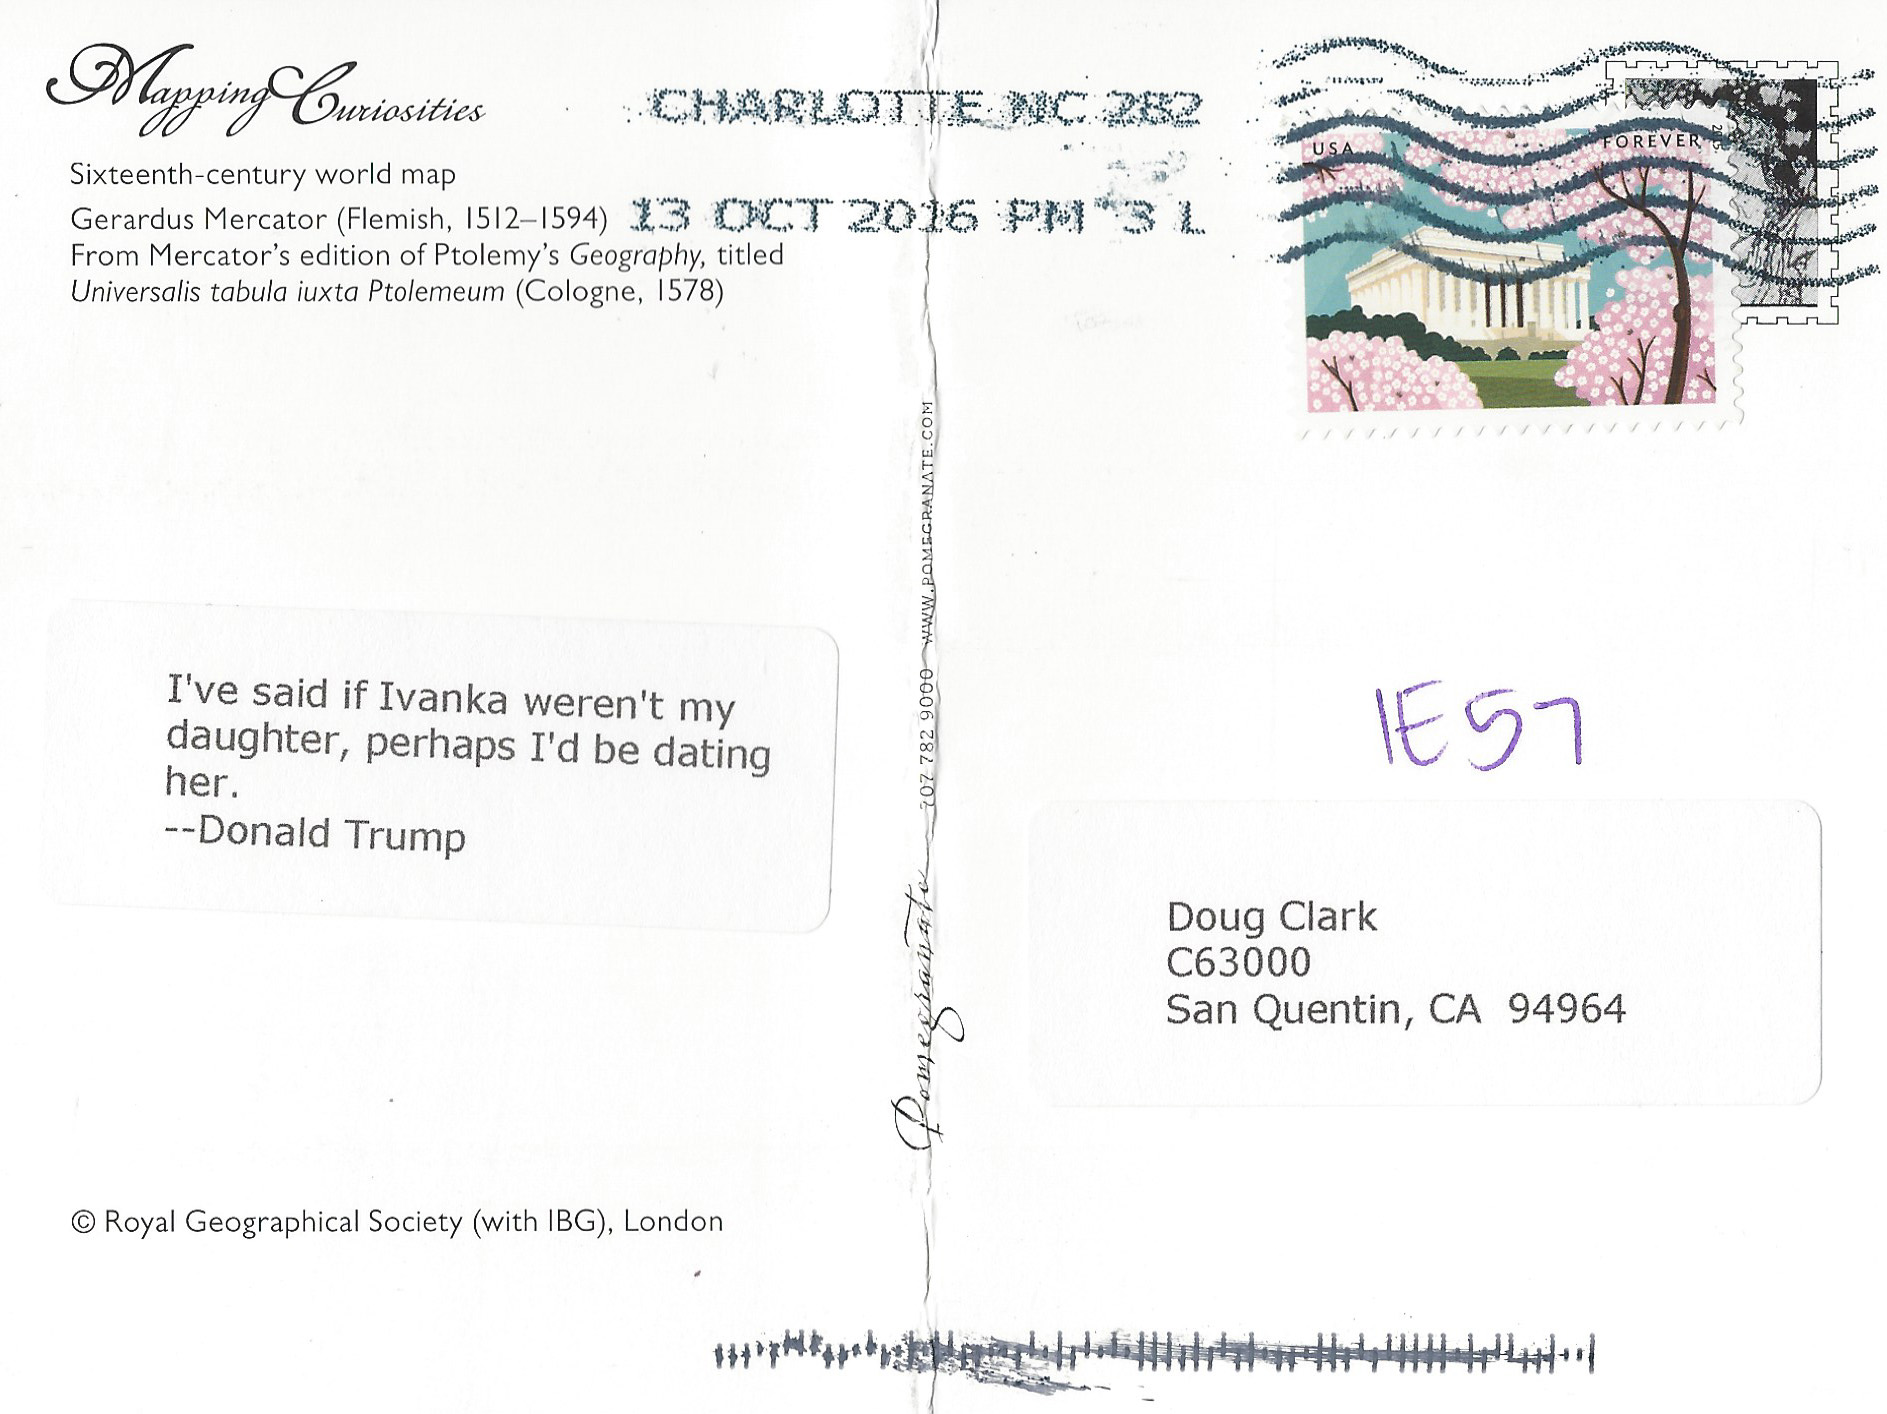 Mapping Curiosities
Sixteenth-century world map
Gerardus Mercator (Flemish, 1512–1594)
From Mercator's edition of Ptolemy's Geography, titled
Universalis tabula iuxta Ptolemeum (Cologne, 1578)
CHARLOTTE NC 282
13 OCT 2016 PM 3 L
USA
FOREVER
I've said if Ivanka weren't my
daughter, perhaps I'd be dating
her.
--Donald Trump
Pomegranate
707 782 9000 WWW.POMEGRANATE.COM
IE57
Doug Clark
C63000
San Quentin, CA 94964
© Royal Geographical Society (with IBG), London